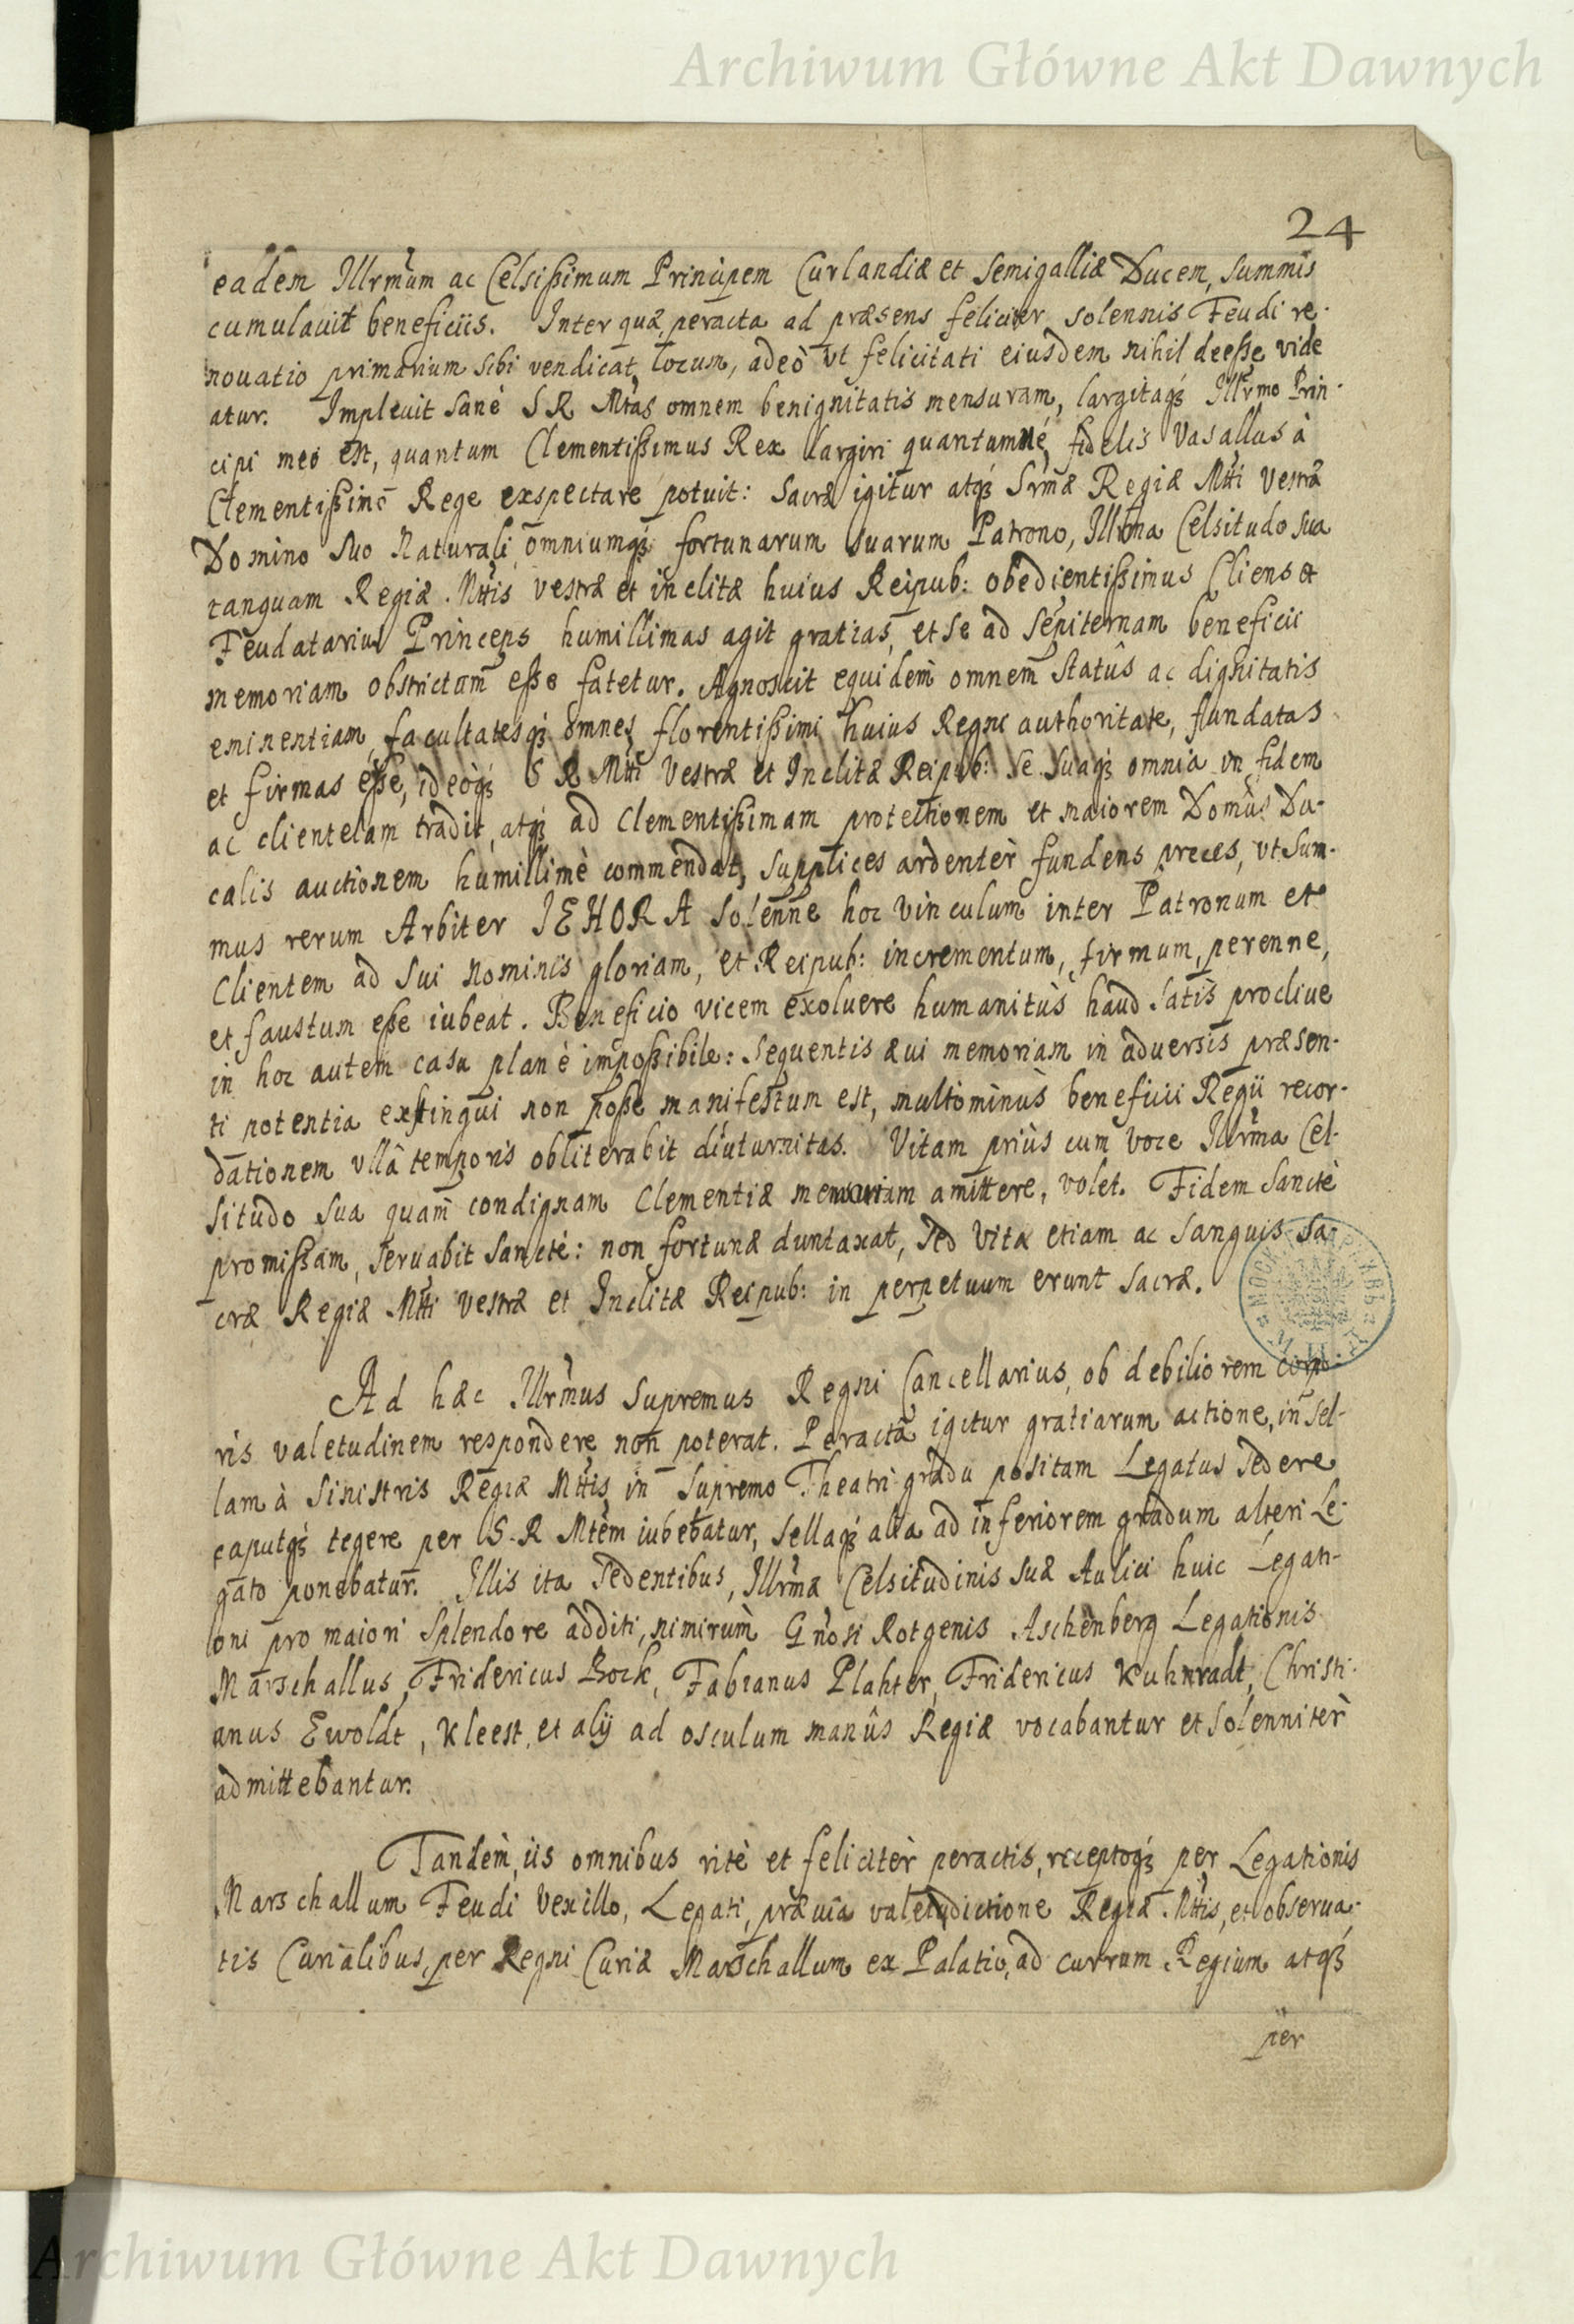 Archiwum Główne Akt Dawnych
24
eadem Illrmum ac Celsißimum Principem Curlandiæ et Semigalliæ Ducem, summis
cumulauit beneficiis. Inter quæ, peracta ad præsens feliciter solennis Feudi re-
nouatio primarium sibi vendicat locum, adeò vt felicitati eiusdem nihil deeße vide
atur. Impleuit sanè S R Mtas omnem benignitatis mensuram, largitaq́; Illrmo Prin-
cipi meo est, quantum Clementißimus Rex largiri quantumuè fidelis Vasallus à
Clementißimo Rege exspectare potuit: Sacræ igitur atq́; Srmæ Regiæ Mtti Vestræ
Domino suo Naturali, omniumq́; fortunarum suarum Patrono, Illrma Celsitudo sua
tanquam Regiæ Mttis vestræ et inclitæ huius Reipub: obedientißimus Cliens et
Feudatarius Princeps humillimas agit gratias, et se ad sepiternam beneficii
memoriam obstrictum eße fatetur. Agnoscit equidem̀ omnem statûs ac dignitatis
eminentiam, facultatesq́; omnes florentißimi huius Regni authoritate, fundatas
et firmas eße, ideòq́; S R Mtti Vestræ et Inclitæ Reipub: se suaq́; omnia in fidem
ac clientelam tradit, atq́; ad Clementißimam protectionem et maiorem Domûs Du-
calis auctionem humillimè commendat, supplices ardentèr fundens preces, vt sum-
mus rerum Arbiter IEHOVA solenne hoc vinculum inter Patronum et
Clientem ad sui nominis gloriam, et Reipub: incrementum, firmum, perenne,
et faustum eße iubeat. Beneficio vicem exoluere humanitùs haud satìs procliue
in hoc autem casu planè impoßibile: Sequentis æui memoriam in aduersis præsen-
ti potentia extingui non poße manifestum est, multominùs beneficii Regii recor-
dationem vllâ temporis obliterabit diuturnitas. Vitam priùs cum voce Illrma Cel-
situdo sua quam̀ condignam Clementiæ memoriam amittere, volet. Fidem sanctè
promißam, seruabit sanctè: non fortunæ duntaxat, sed vita etiam ac sanguis sa-
cræ Regiæ Mtti vestræ et Inclitæ Reipub: in perpetuum erunt sacræ.
Ad hæc Illrmus Supremus Regni Cancellarius, ob debiliorem corpo-
ris valetudinem respondere non poterat. Peractâ igitur gratiarum actione, in sel-
lam à sinistris Regiæ Mttis in supremo Theatri gradu positam Legatus sedere
caputq́; tegere per S. R Mtem iubebatur, sellaq́; alia ad inferiorem gradum alteri Le-
gato ponebatur. Illis ita sedentibus, Illrmæ Celsitudinis suæ Aulici huic Legati-
oni pro maiori splendore additi, nimirum̀ Gnosi Rotgenis Aschenberg Legationis
Marschallus, Fridericus Bock, Fabianus Plahter, Fridericus Kuhnradt, Christi-
anus Ewoldt, Kleest, et alij ad osculum manûs Regiæ vocabantur et solennitèr
admittebantur.
Tandem̀, iis omnibus ritè et felicitèr peractis, receptoq́; per Legationis
Marschallum Feudi Vexillo, Legati, præuiâ valedictione Regiæ Mttis, et obserua-
tis Curialibus, per Regni Curiæ Marschallum ex Palatio, ad currum Regium atq́;
per
Archiwum Główne Akt Dawnych